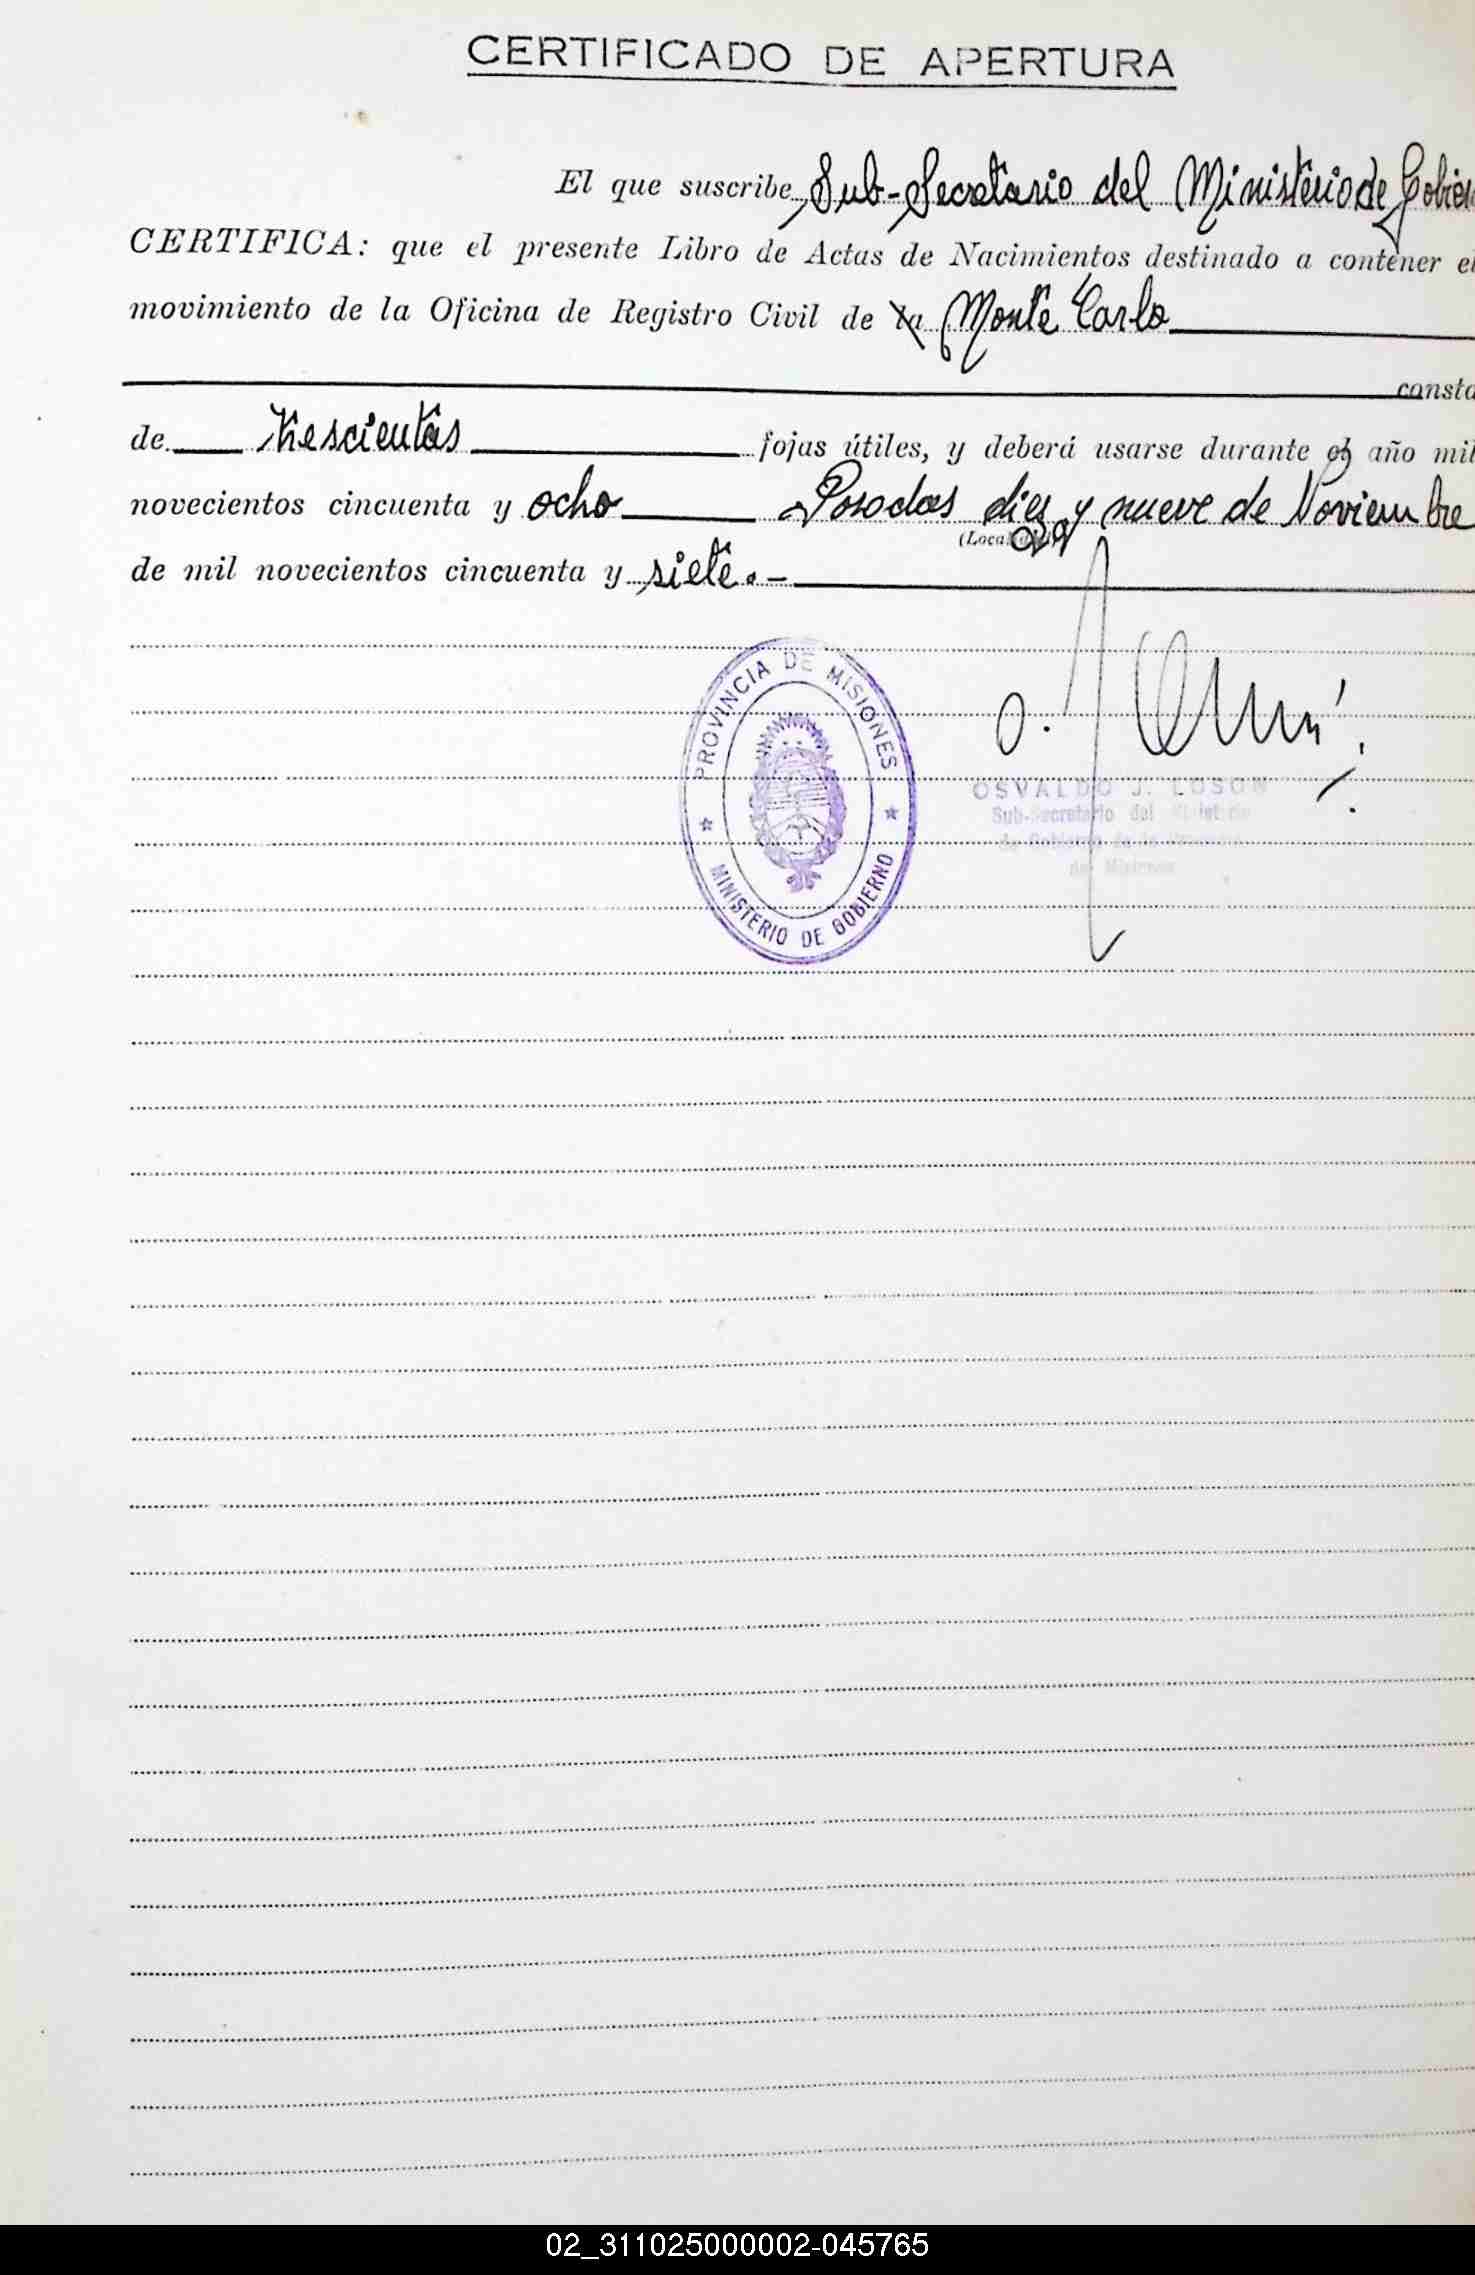 CERTIFICADO DE APERTURA
El que suscribe Sub-Secretario del Ministerio de Gobier
CERTIFICA: que el presente Libro de Actas de Nacimientos destinado a contener el
movimiento de la Oficina de Registro Civil de la Monte Carlo
consta
de trescientas fojas útiles, y deberá usarse durante el año mil
novecientos cincuenta y ocho Posadas diez y nueve de Noviembre
de mil novecientos cincuenta y siete.-
PROVINCIA DE MISIONES
MINISTERIO DE GOBIERNO
OSVALDO J. LOSON
Sub-Secretario del Ministerio
de Gobierno de la Provincia
de Misiones
02_311025000002-045765